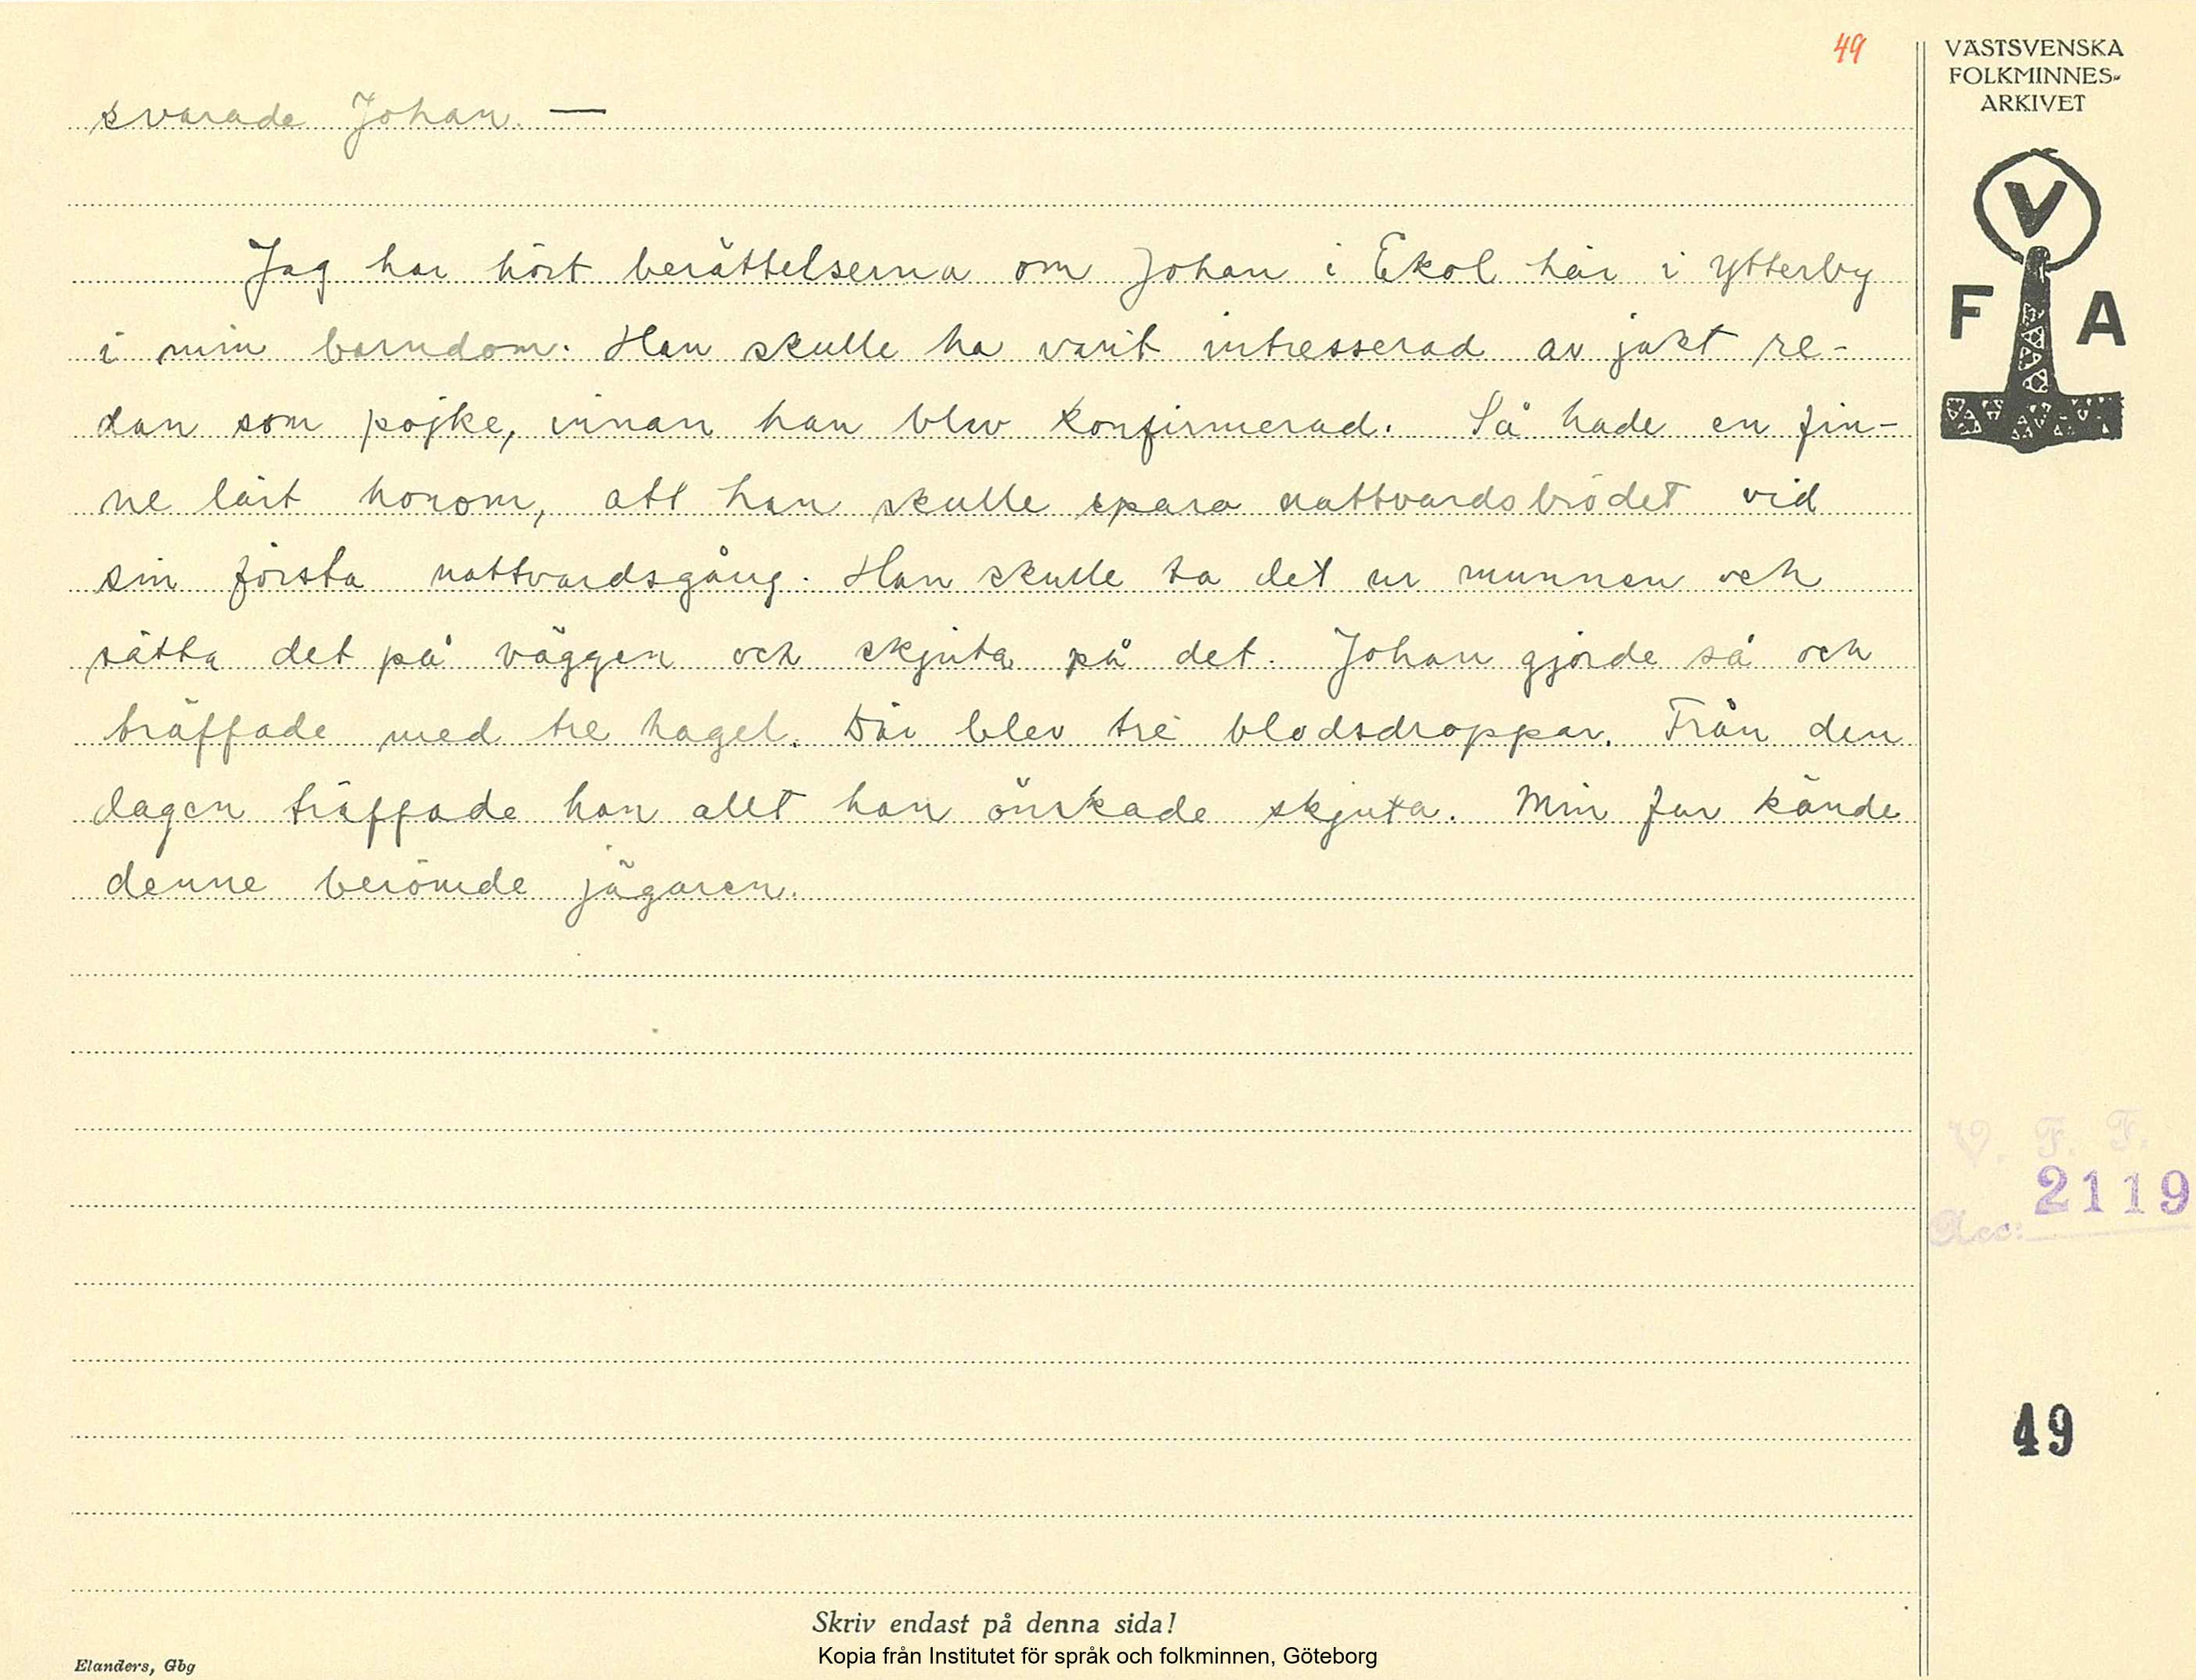 49
VÄSTSVENSKA
FOLKMINNES-
ARKIVET
V
F A
svarade Johan. —
Jag har hört berättelserna om Johan i Ekol här i Ytterby
i min barndom. Han skulle ha varit intresserad av jakt re-
dan som pojke, innan han blev konfirmerad. Så hade en fin-
ne lärt honom, att han skulle spara nattvardsbrödet vid
sin första nattvardsgång. Han skulle ta det ur munnen och
sätta det på väggen och skjuta på det. Johan gjorde så och
träffade med tre hagel. Där blev tre blodsdroppar. Från den
dagen träffade han allt han önskade skjuta. Min far kände
denne berömde jägaren.
V. F. F.
Acc: 2119
49
Skriv endast på denna sida!
Kopia från Institutet för språk och folkminnen, Göteborg
Elanders, Gbg